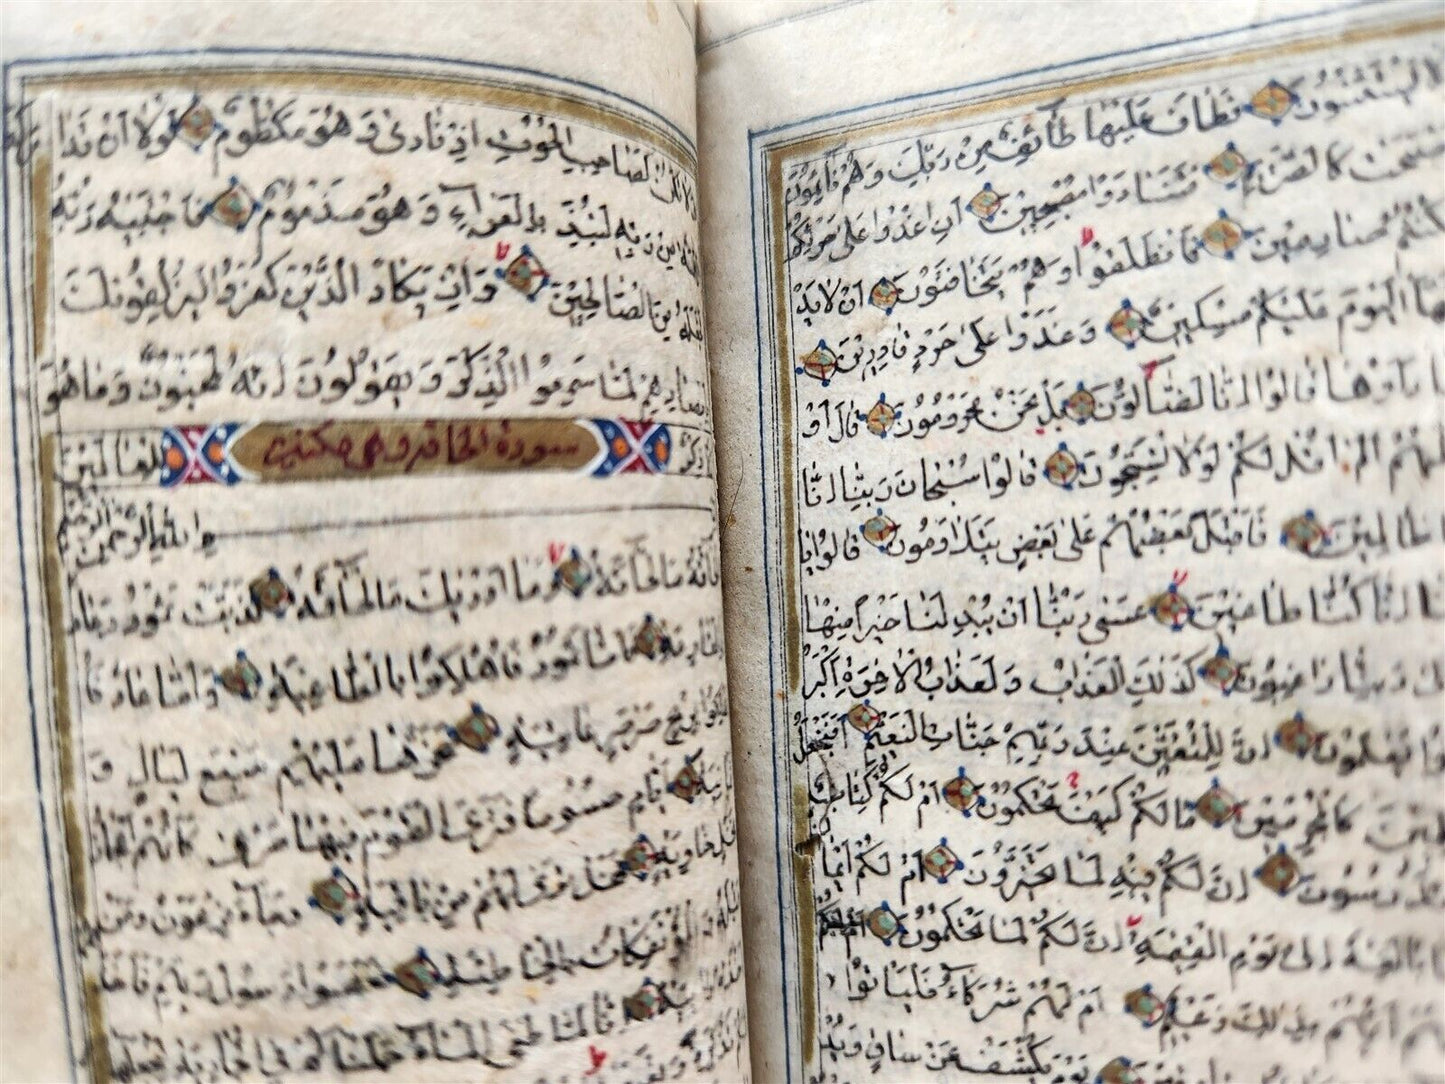 لا يستثنون فطاف عليها طائف من ربك وهم نائمون
كالصريم فتنادوا مصبحين ان اغدوا على حرثكم
كنتم صارمين فانطلقوا وهم يتخافتون ان لا يد
اليوم عليكم مسكين وغدوا على حرد قادرين
راوها قالوا انا لضالون بل نحن محرومون قال او
الم اقل لكم لولا تسبحون قالوا سبحان ربنا انا
ظالمين فاقبل بعضهم على بعض يتلاومون قالوا يا
انا كنا طاغين عسى ربنا ان يبدلنا خيرا منها
ربنا راغبون كذلك العذاب ولعذاب الاخرة اكبر
يعلمون ان للمتقين عند ربهم جنات النعيم افنجعل
كالمجرمين مالكم كيف تحكمون ام لكم كتاب فيه
تدرسون ان لكم فيه لما تخيرون ام لكم ايما
بالغة الى يوم القيمة ان لكم لما تحكمون
ايهم بذلك زعيم ام لهم شركاء فلياتوا
يوم يكشف عن ساق ويد
ولا تكن كصاحب الحوت اذ نادى وهو مكظوم لولا ان تدا
من ربه لنبذ بالعراء وهو مذموم فاجتبيه ربه
من الصالحين وان يكاد الذين كفروا ليزلقونك
بابصارهم لما سمعوا الذكر ويقولون انه لمجنون وما هو
ذكر للعالمين
سورة الحاقة وهي مكية
بسم الله الرحمن الرحيم
الحاقة ما الحاقة وما ادريك ما الحاقة كذبت ثمود وعاد
بالقارعة فاما ثمود فاهلكوا بالطاغية واما عاد فا
بريح صرصر عاتية سخرها عليهم سبع ليال و
ايام حسوما فترى القوم فيها صرعى كانهم اعجاز
نخل خاوية فهل ترى لهم من باقية وجاء فرعون ومن
والمؤتفكات بالخاطئة فعصوا رسول ربهم فاخذ
رابية انا لما طغى الماء حملناكم في الجارية لنجعلها